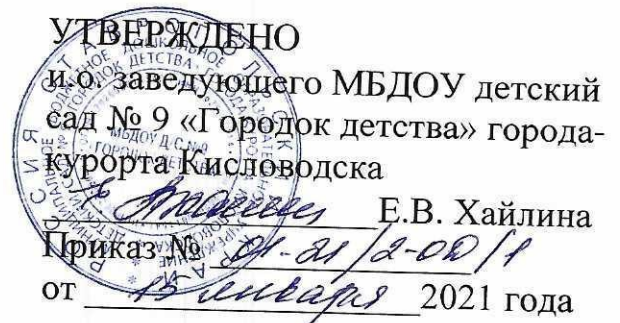 УТВЕРЖДЕНО
и.о. заведующего МБДОУ детский
сад № 9 «Городок детства» города-
курорта Кисловодска
Е.В. Хайлина
Приказ № 01-21/2-ОД/1
от 13 января 2021 года